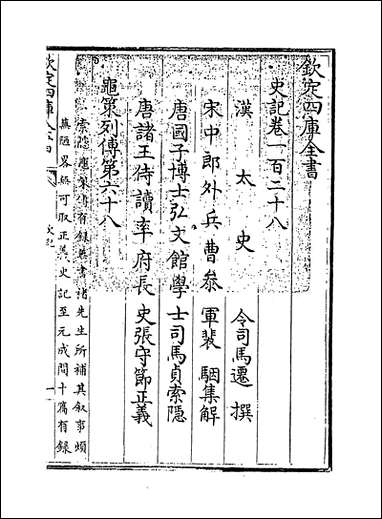 欽定四庫全書
史記卷一百二十八
漢太史令司馬遷撰
宋中郎外兵曹參軍裴駰集解
唐國子博士弘文館學士司馬貞索隱
唐諸王侍讀率府長史張守節正義
龜策列傳第六十八
索隱龜策傳有録無書褚先生所補其叙事煩
蕪陋略無可取正義史記至元成間十篇有録
欽定四庫全書
史記
一